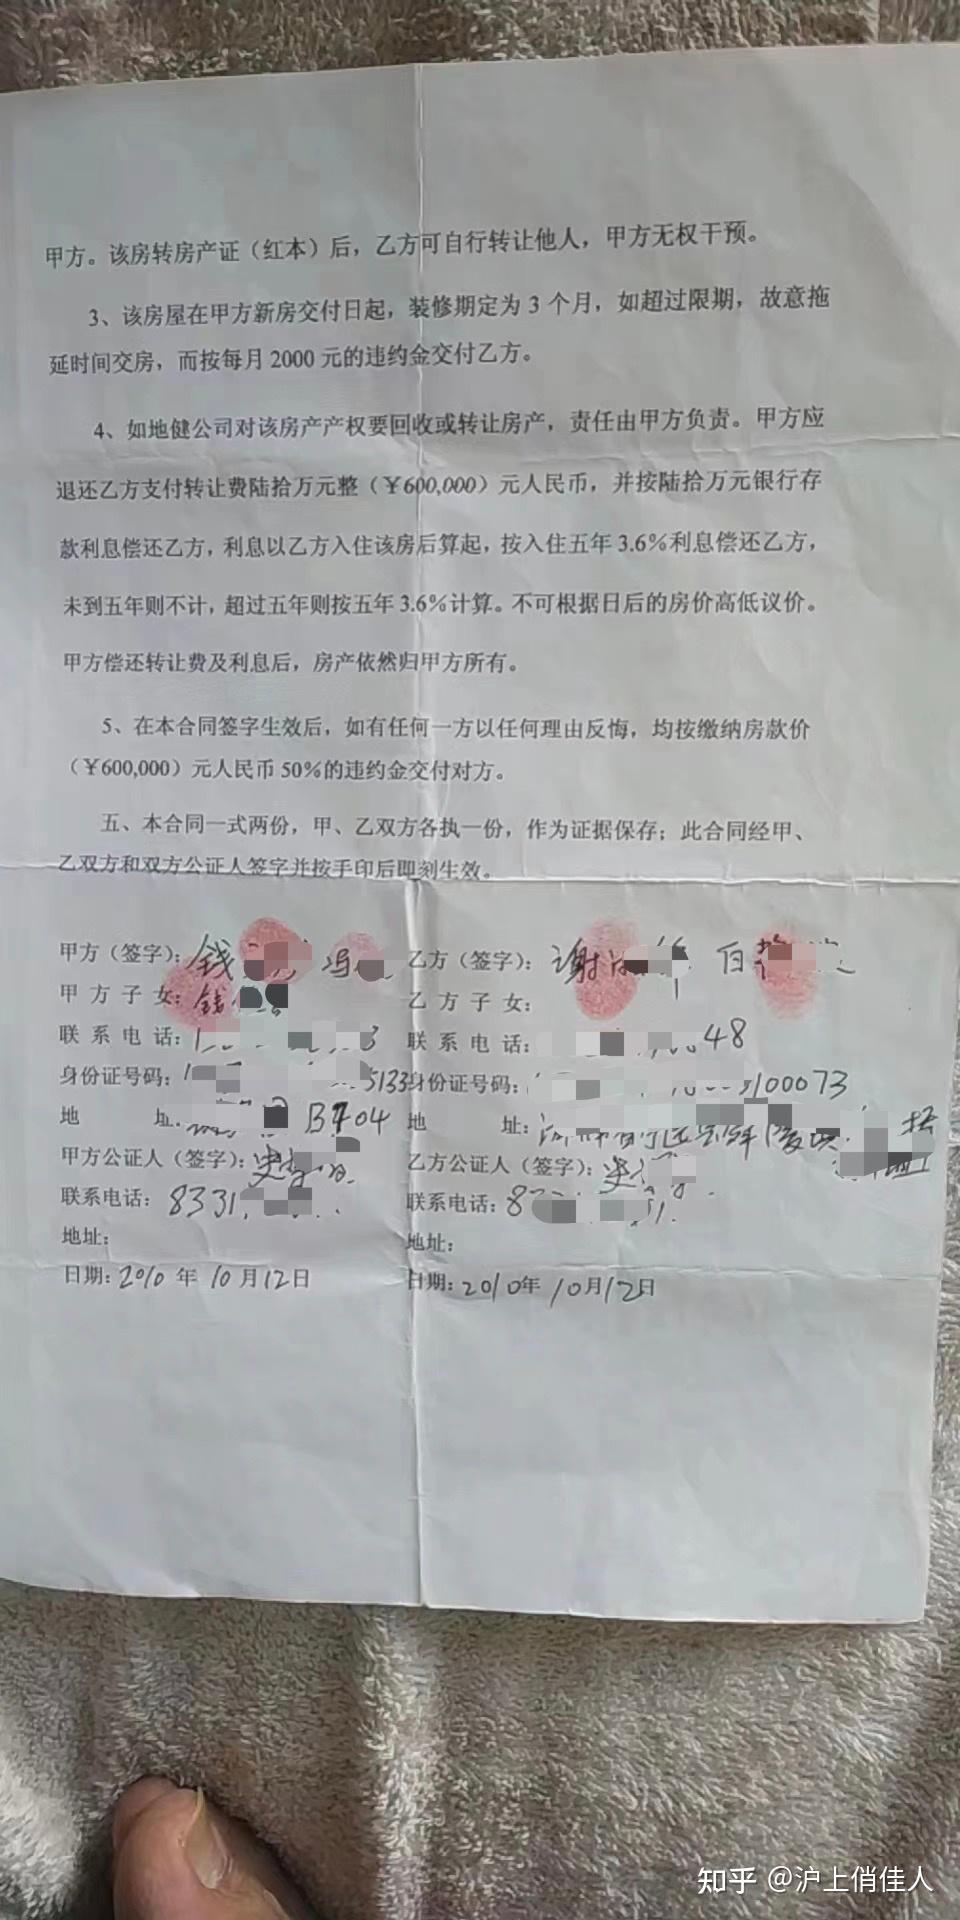 甲方。该房转房产证（红本）后，乙方可自行转让他人，甲方无权干预。
3、该房屋在甲方新房交付日起，装修期定为 3 个月，如超过限期，故意拖
延时间交房，而按每月 2000 元的违约金交付乙方。
4、如地健公司对该房产产权要回收或转让房产，责任由甲方负责。甲方应
退还乙方支付转让费陆拾万元整（￥600,000）元人民币，并按陆拾万元银行存
款利息偿还乙方，利息以乙方入住该房后算起，按入住五年 3.6%利息偿还乙方，
未到五年则不计，超过五年则按五年 3.6%计算。不可根据日后的房价高低议价。
甲方偿还转让费及利息后，房产依然归甲方所有。
5、在本合同签字生效后，如有任何一方以任何理由反悔，均按缴纳房款价
（￥600,000）元人民币 50%的违约金交付对方。
五、本合同一式两份，甲、乙双方各执一份，作为证据保存；此合同经甲、
乙双方和双方公证人签字并按手印后即刻生效。
甲方（签字）：钱 冯 乙方（签字）：谢 白
甲方子女：钱 乙方子女：
联系电话： 3 联系电话： 48
身份证号码：1 5133 身份证号码： 100073
地 址： B704 地 址：
甲方公证人（签字）：史 乙方公证人（签字）：史
联系电话：8331 联系电话：8
地址： 地址：
日期：2010 年 10 月 12 日 日期：2010年 10月12日
知乎 @沪上俏佳人